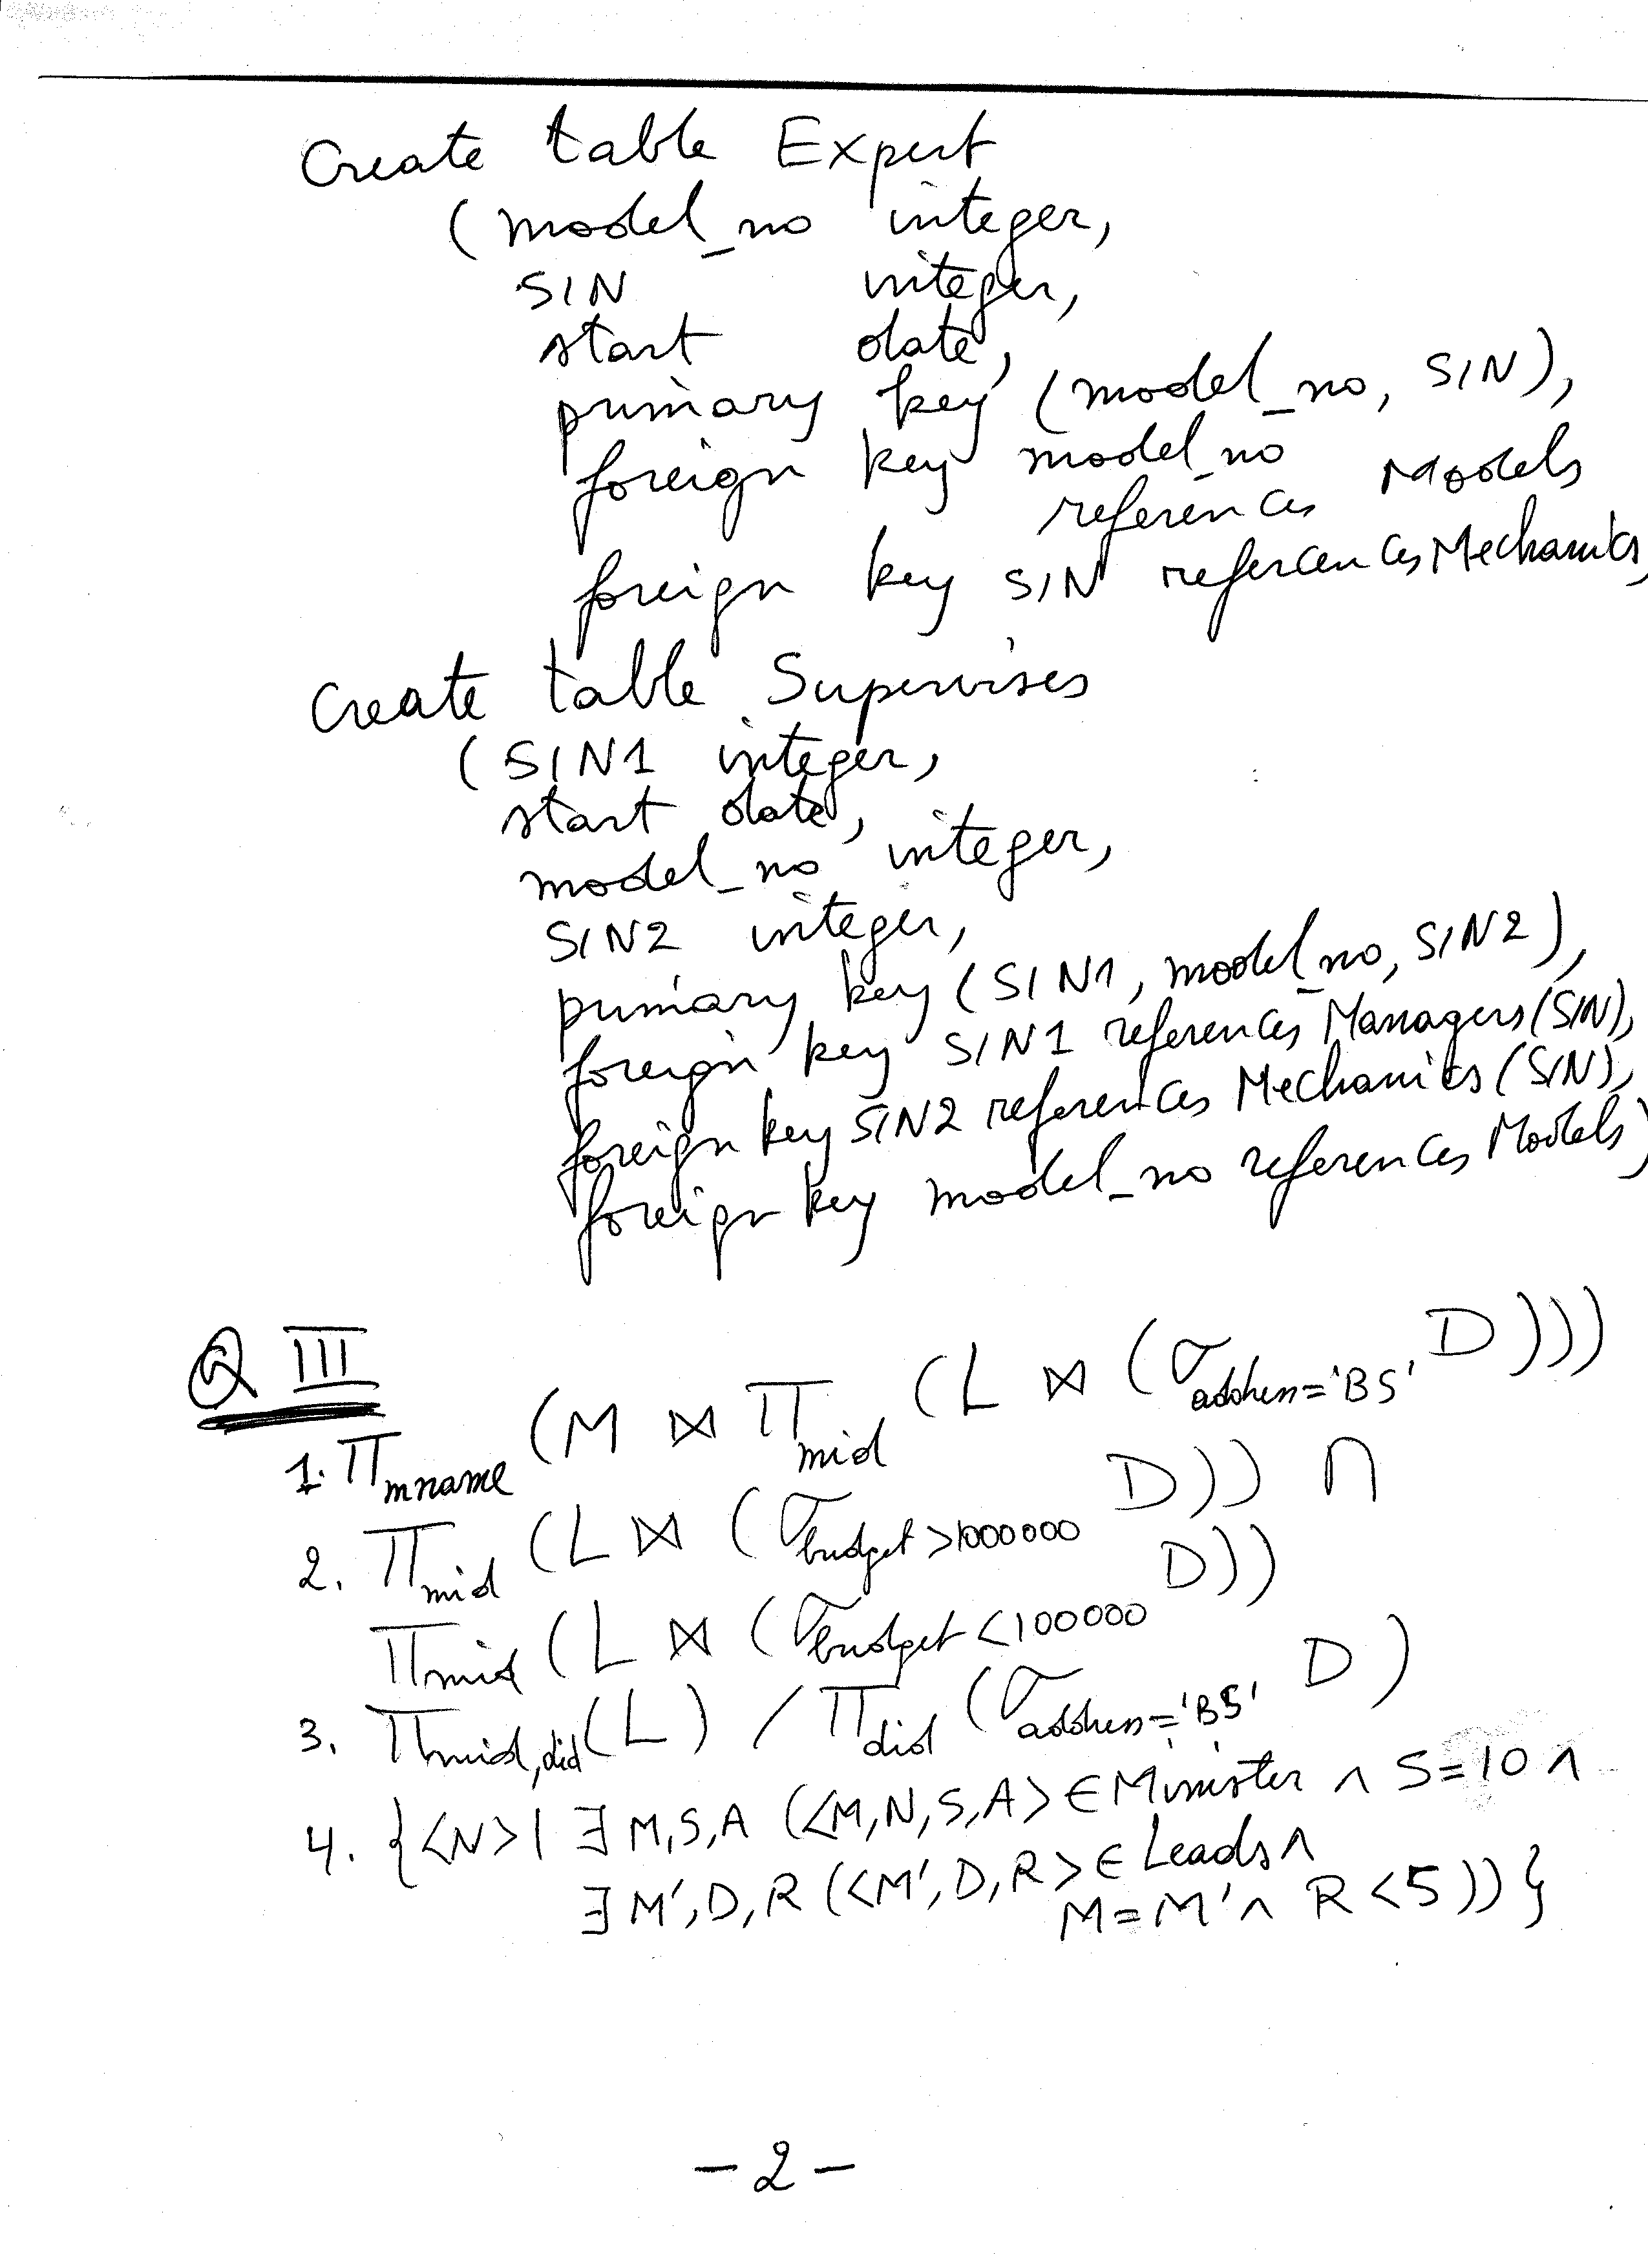 Create table Expert
(model_no integer,
SIN integer,
start date,
primary key (model_no, SIN),
foreign key model_no
references Models
foreign key SIN references Mechanics,
Create table Supervises
(SIN1 integer,
start date,
model_no integer,
SIN2 integer,
primary key (SIN1, model_no, SIN2),
foreign key SIN1 references Managers(SIN),
foreign key SIN2 references Mechanics(SIN),
foreign key model_no references Models)
Q III
1. Π mname (M ⋈ Π mid (L ⋈ (σ address='BS' D)))
2. Π mid (L ⋈ (σ budget >1000000 D)) ∩
Π mid (L ⋈ (σ budget <100000 D))
3. Π mid, did (L) / Π did (σ address='BS' D)
4. {<N>| ∃ M,S,A (<M,N,S,A> ∈ Minister ∧ S=10 ∧
∃ M',D,R (<M',D,R> ∈ Leads ∧
M=M' ∧ R<5))}
-2-